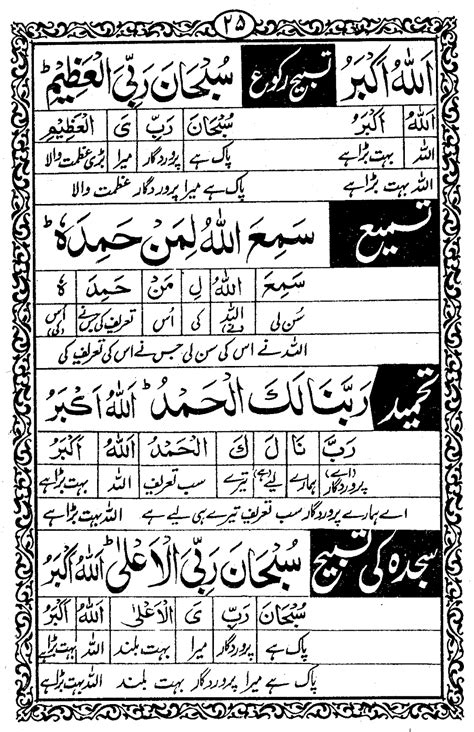 ۲۵
اَللهُ اَكْبَرُ تسبیح رکوع سُبْحَانَ رَبِّىَ الْعَظِيْمِ ط
اَللهُ اَكْبَرُ سُبْحَانَ رَبِّ ىَ الْعَظِيْمِ
اللہ بہت بڑا ہے پاک ہے پروردگار میرا بڑی عظمت والا
اللہ بہت بڑا ہے پاک ہے میرا پروردگار عظمت والا
تسمیع سَمِعَ اللهُ لِمَنْ حَمِدَهٗ ط
سَمِعَ اللهُ لِ مَنْ حَمِدَ هٗ
سُن لی اللہ نے کی اُس تعریف کی جس نے اُس کی
اللہ نے اس کی سن لی جس نے اس کی تعریف کی
تحمید رَبَّنَا لَكَ الْحَمْدُ ط اَللهُ اَكْبَرُ
رَبَّ نَا لَ كَ الْحَمْدُ اَللهُ اَكْبَرُ
(اے) پروردگار ہمارے لیے (ہے) تیرے سب تعریف اللہ بہت بڑا ہے
اے ہمارے پروردگار سب تعریف تیرے ہی لیے ہے اللہ بہت بڑا ہے
سجدہ کی تسبیح سُبْحَانَ رَبِّىَ الْاَعْلٰى ط اَللهُ اَكْبَرُ
سُبْحَانَ رَبِّ ىَ الْاَعْلٰى اَللهُ اَكْبَرُ
پاک ہے پروردگار میرا بہت بلند اللہ بہت بڑا ہے
پاک ہے میرا پروردگار بہت بلند اللہ بہت بڑا ہے